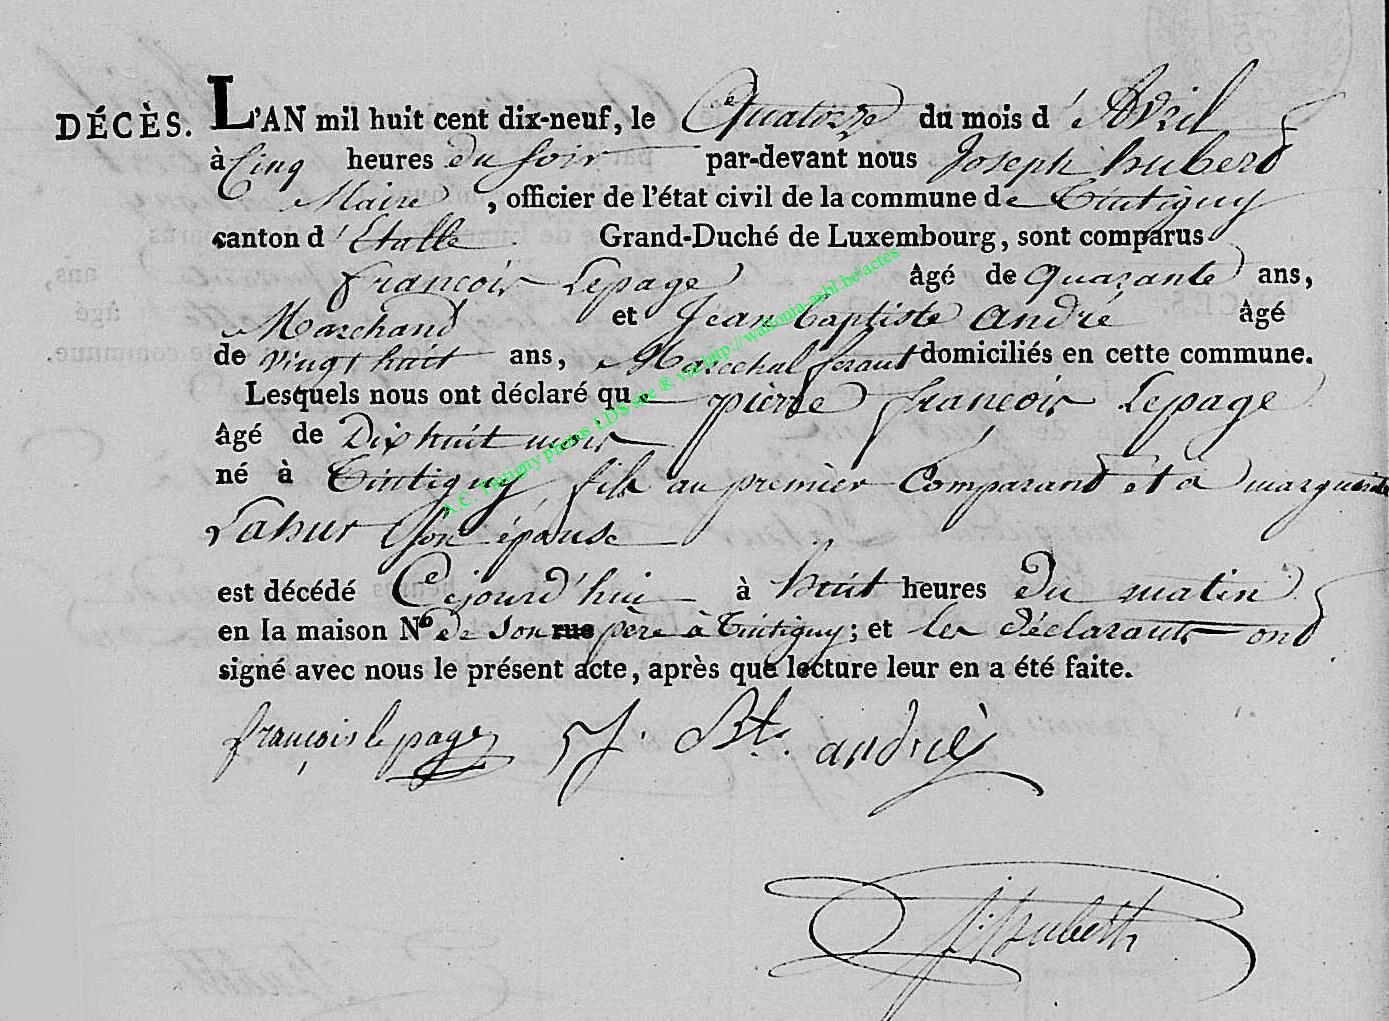 DÉCÈS. L'AN mil huit cent dix-neuf, le Quatorze du mois d'Avril
à Cinq heures du soir par-devant nous Joseph hubert
Maire, officier de l'état civil de la commune de Tintigny
canton d'Etalle Grand-Duché de Luxembourg, sont comparus
françois Lepage âgé de quarante ans,
Marchand et Jean baptiste andré âgé
de vingt huit ans, Marechal feraut domiciliés en cette commune.
Lesquels nous ont déclaré que pierre françois Lepage
âgé de Dix huit mois
né à Tintigny, fils au premier Comparant et a marguerite
Lahur son épouse
est décédé Cejourd'hui à huit heures du matin
en la maison No de son rue père à Tintigny; et les déclarants ont
signé avec nous le présent acte, après que lecture leur en a été faite.
françois le page J. Bte. andrié
J. hubert
A.C. Tintigny photos LDS site ® via http://wallonia-asbl.be/actes